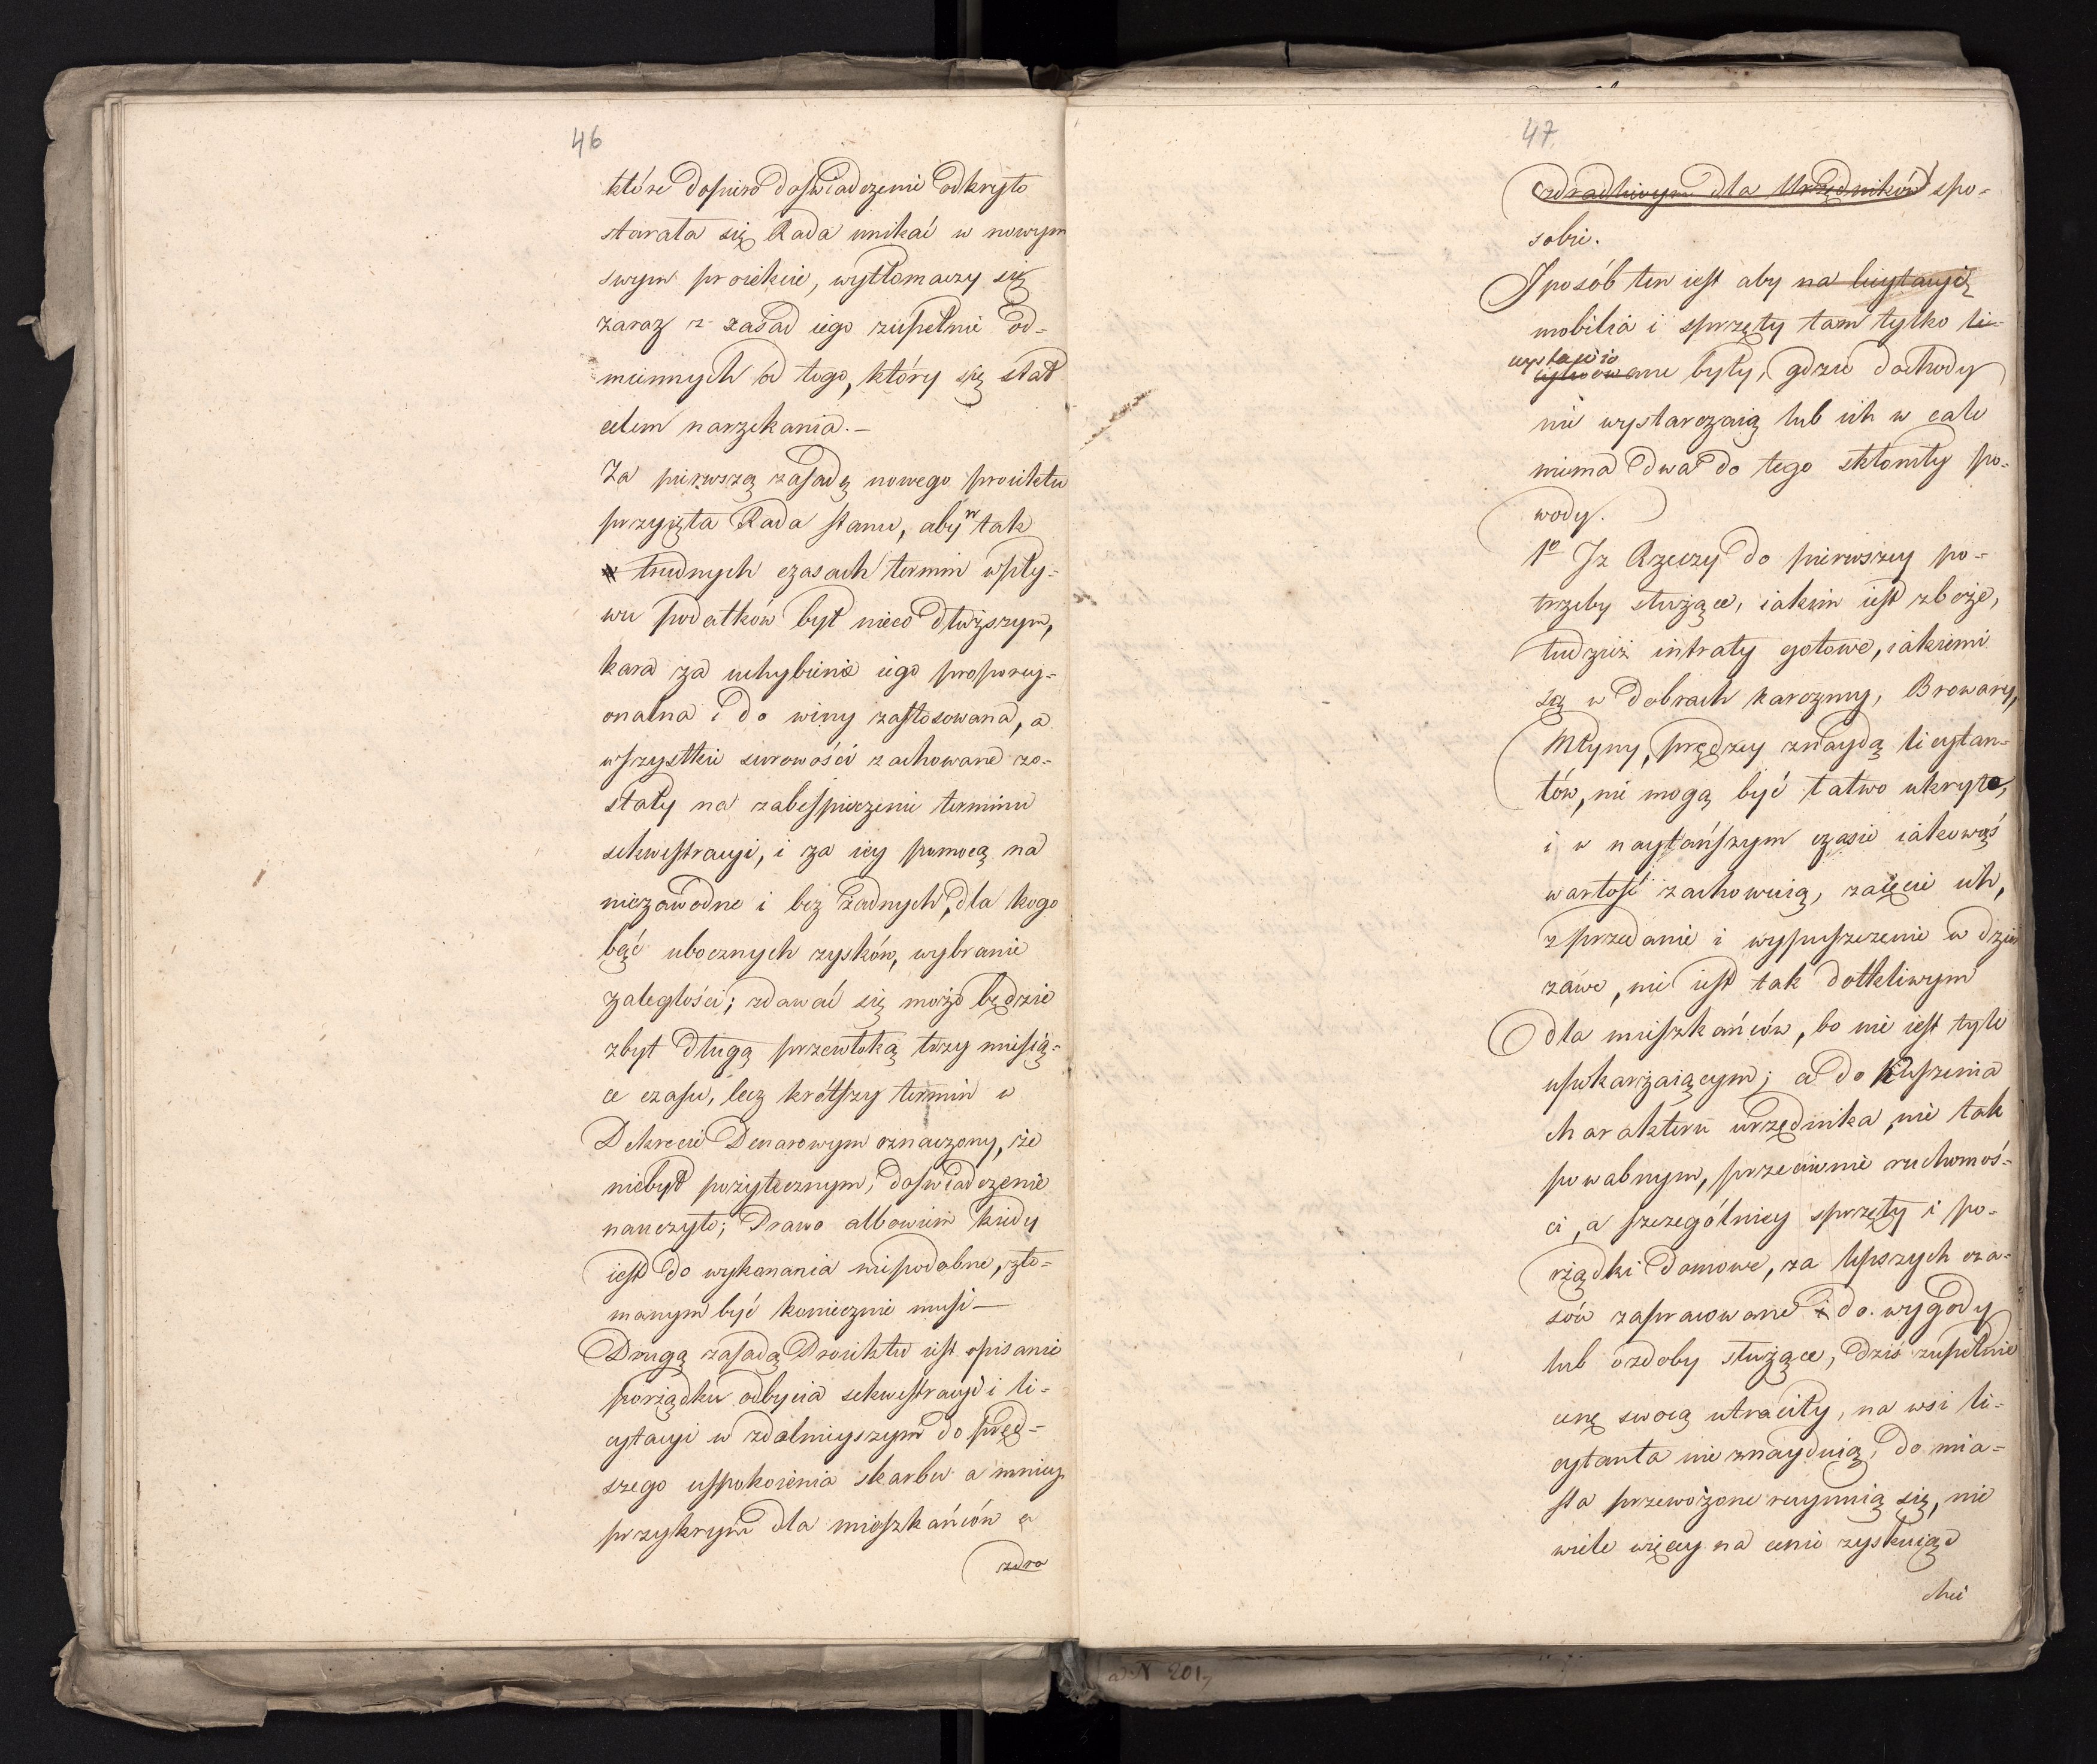 46
które dopiero doświadczenie odkryło
starała się Rada unikać w nowym
swym proiekcie, wytłomaczy się
zaraz z zasad iego zupełnie od-
miennych od tego, który się stał
celem narzekania. —
Za pierwszą zasadę nowego proiektu
przyięła Rada stanu, aby w tak
trudnych czasach termin wpły-
wu podatków był nieco dłuższym,
kara za uchybienie iego proporcy-
onalna i do winy zastosowana, a
wszystkie surowości zachowane zo-
stały na zabespieczenie terminu
sekwestracyi, i za iey pomocą na
niezawodne i bez żadnych, dla kogo
bąć ubocznych zysków, wybranie
zaległości; zdawać się może będzie
zbyt długą przewłoką trzy miesią-
ce czasu, lecz krótszy termin w
Dekrecie Decarowym oznaczony, że
niebył pożytecznym, doświadczenie
nauczyło; Prawo albowiem kiedy
iest do wykonania niepodobne, zła-
manym być koniecznie musi —
Drugą zasadą Proiektu iest opisanie
porządku odbycia sekwestracyi i li-
cytacyi w zdalnieyszym do pręd-
szego uspokoienia skarbu a mniey
przykrym dla mieszkańców a
zdra
47
zdradliwym dla Urzędników spo-
sobie.
Sposób ten iest aby na licytacyię
mobilia i sprzęty tam tylko li-
wystawio
cytowane były, gdzie dochody
nie wystarczaią lub ich w cale
niema dwa do tego skłoniły po-
wody.
1o Iż Rzeczy do pierwszey po-
trzeby służące, iakiem iest zboże,
tudzież intraty gotowe, iakiemi
są w dobrach karczmy, Browary,
Młyny, prędzey znaydą licytan-
tów, nie mogą być łatwo ukryte,
i w naytańszym czasie iakowąś
wartość zachowuią, zaięcie ich,
sprzedanie i wypuszczenie w dzier
zawe, nie iest tak dotkliwym
dla mieszkańców, bo nie iest tyle
upokarzaiącym; a do kuszenia
charakteru urzędnika, nie tak
powabnym, przeciwnie ruchomoś-
ci, a szczególniey sprzęty i po-
rządki domowe, za lepszych cza-
sów zapracowane i do wygody
lub ozdoby służące, dziś zupełnie
cenę swoią utraciły, na wsi li-
cytanta nie znayduią, do mia-
sta przewożone ruynuią się, nie
wiele więcey na cenie zyskuiąc
chci
a N 201,